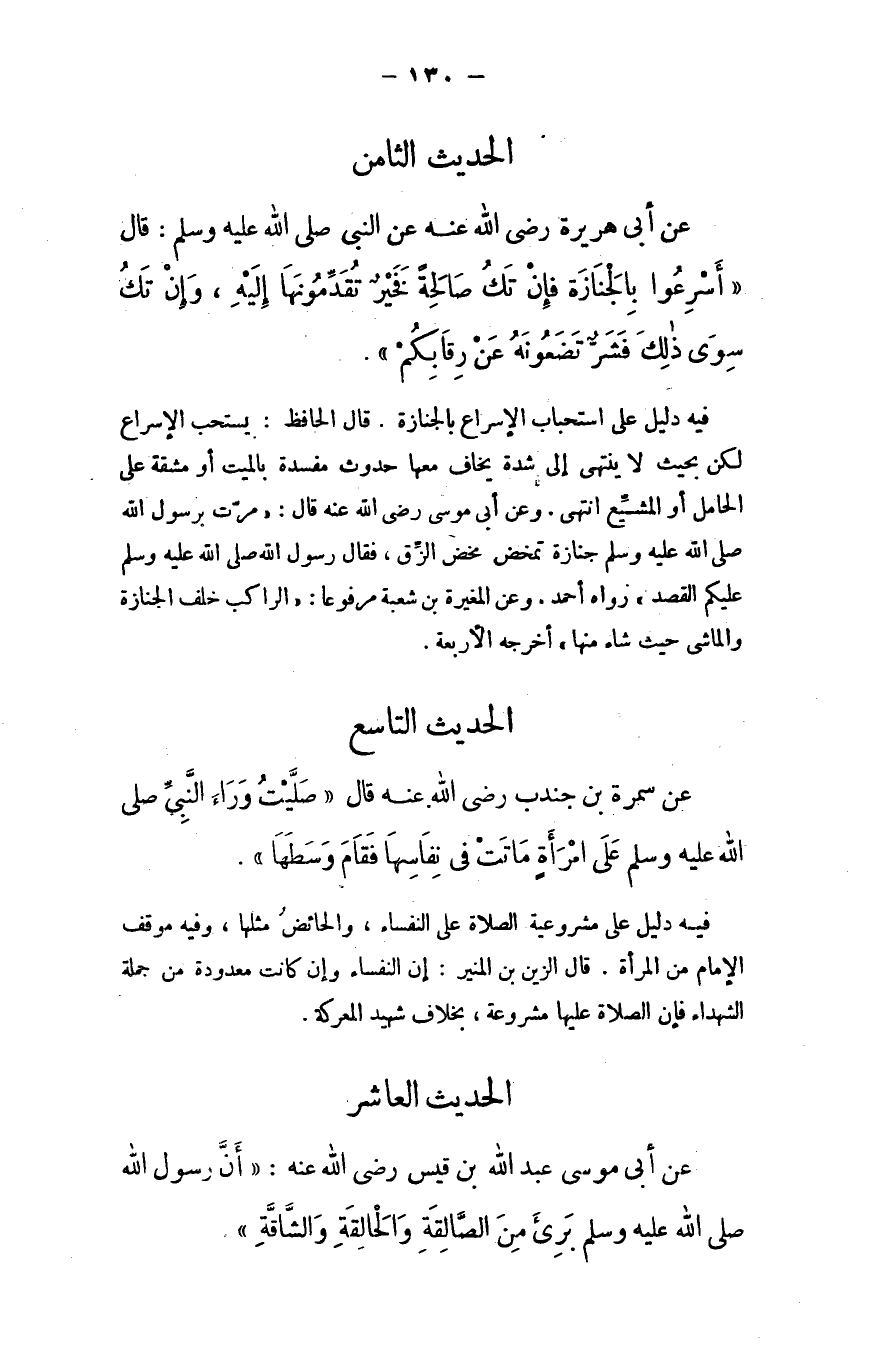 – ١٣٠ –
الحديث الثامن
عن أبى هريرة رضى الله عنه عن النبى صلى الله عليه وسلم : قال
« أَسْرِعُوا بِالْجَنَازَة فإِنْ تَكُ صَالِحَةً فَخَيْرٌ تُقَدِّمُونَهَا إِلَيْهِ ، وَإِنْ تَكُ
سِوَى ذٰلِكَ فَشَرٌّ تَضَعُونَهُ عَنْ رِقَابِكُمْ » .
فيه دليل على استحباب الإسراع بالجنازة . قال الحافظ : يستحب الإسراع
لكن بحيث لا ينتهى إلى شدة يخاف معها حدوث مفسدة بالميت أو مشقة على
الحامل أو المشيِّع انتهى . وعن أبى موسى رضى الله عنه قال : « مرّت برسول الله
صلى الله عليه وسلم جنازة تمخض مخض الزِّق ، فقال رسول الله صلى الله عليه وسلم
عليكم القصد » رواه أحمد . وعن المغيرة بن شعبة مرفوعا : « الراكب خلف الجنازة
والماشى حيث شاء منها » أخرجه الأربعة .
الحديث التاسع
عن سمرة بن جندب رضى الله عنه قال « صَلَّيْتُ وَرَاءَ النَّبِيِّ صلى
الله عليه وسلم عَلَى امْرَأَةٍ مَاتَتْ فى نِفَاسِهَا فَقَامَ وَسَطَهَا » .
فيه دليل على مشروعية الصلاة على النفساء ، والحائضُ مثلها ، وفيه موقف
الإمام من المرأة . قال الزين بن المنير : إن النفساء وإن كانت معدودة من جملة
الشهداء فإن الصلاة عليها مشروعة ، بخلاف شهيد المعركة .
الحديث العاشر
عن أبى موسى عبد الله بن قيس رضى الله عنه : « أَنَّ رسول الله
صلى الله عليه وسلم بَرِئَ مِنَ الصَّالِقَةِ وَالْحَالِقَةِ وَالشَّاقَّةِ » .